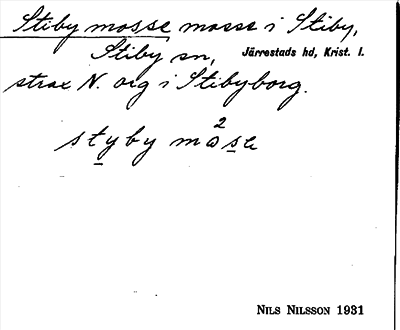 Stiby mosse mosse i Stiby,
Stiby sn, Järrestads hd, Krist. l.
strax N. om i Stibyborg.
styby mo²se
NILS NILSSON 1931